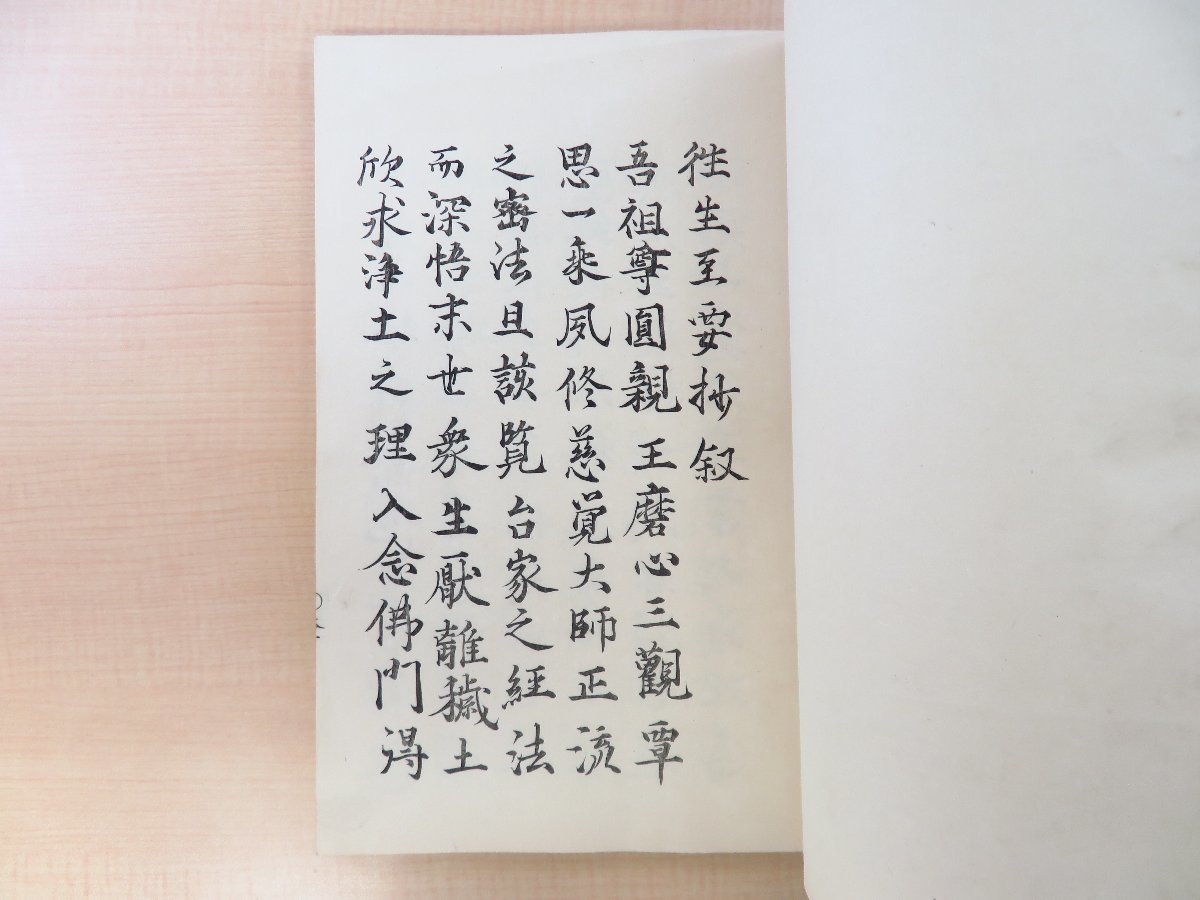 徃生至要抄叙
吾祖尊圓親王磨心三觀覃
思一乘夙修慈覚大師正流
之密法且該覧台家之經法
而深悟末世衆生厭離穢土
欣求浄土之理入念佛門得